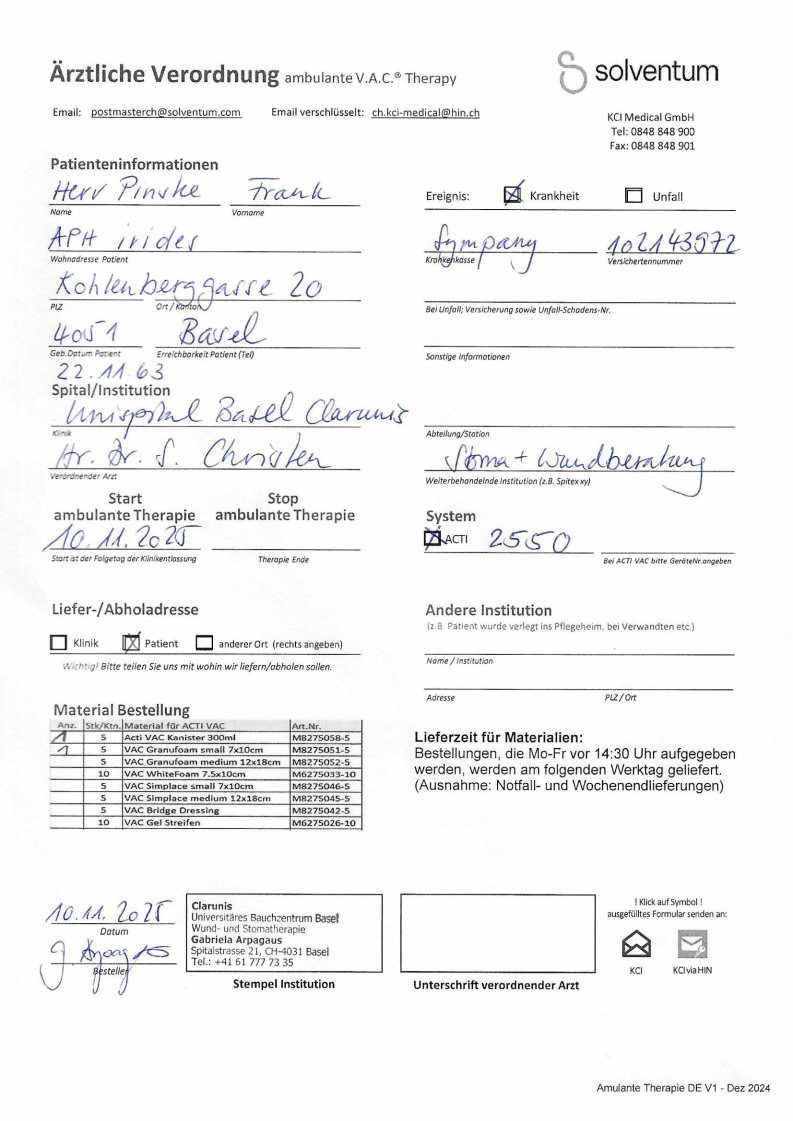 Ärztliche Verordnung ambulante V.A.C.® Therapy
solventum
Email: postmasterch@solventum.com Email verschlüsselt: ch.kci-medical@hin.ch
KCI Medical GmbH
Tel: 0848 848 900
Fax: 0848 848 901
Patienteninformationen
Herr Pinske Frank
Name Vorname
Ereignis: Krankheit Unfall
APH irides
Wohnadresse Patient
Sympany 102143972
Krankenkasse Versichertennummer
Kohlenberggasse 20
PLZ Ort / Kanton
Bei Unfall; Versicherung sowie Unfall-Schadens-Nr.
4051 Basel
Geb.Datum Patient Erreichbarkeit Patient (Tel)
Sonstige Informationen
22.11.63
Spital/Institution
Unispital Basel Clarunis
Klinik
Abteilung/Station
Hr. Dr. S. Christen
Verordnender Arzt
Stoma + Wundberatung
Weiterbehandelnde Institution (z.B. Spitex xy)
Start ambulante Therapie
Stop ambulante Therapie
10.11.2025
Start ist der Folgetag der Klinikentlassung Therapie Ende
System
ACTI 2550
Bei ACTI VAC bitte GeräteNr.angeben
Liefer-/Abholadresse
Klinik Patient anderer Ort (rechts angeben)
Wichtig! Bitte teilen Sie uns mit wohin wir liefern/abholen sollen.
Andere Institution
(z.B. Patient wurde verlegt ins Pflegeheim, bei Verwandten etc.)
Name / Institution
Adresse PLZ / Ort
Material Bestellung
Anz. Stk/Ktn. Material für ACTI VAC Art.Nr.
1 5 Acti VAC Kanister 300ml M8275058-5
1 5 VAC Granufoam small 7x10cm M8275051-5
5 VAC Granufoam medium 12x18cm M8275052-5
10 VAC WhiteFoam 7.5x10cm M6275033-10
5 VAC Simplace small 7x10cm M8275046-5
5 VAC Simplace medium 12x18cm M8275045-5
5 VAC Bridge Dressing M8275042-5
10 VAC Gel Streifen M6275026-10
Lieferzeit für Materialien:
Bestellungen, die Mo-Fr vor 14:30 Uhr aufgegeben
werden, werden am folgenden Werktag geliefert.
(Ausnahme: Notfall- und Wochenendlieferungen)
10.11.2025
Datum
G. Arpagaus
Besteller
Clarunis
Universitäres Bauchzentrum Basel
Wund- und Stomatherapie
Gabriela Arpagaus
Spitalstrasse 21, CH-4031 Basel
Tel.: +41 61 777 73 35
Stempel Institution
Unterschrift verordnender Arzt
! Klick auf Symbol !
ausgefülltes Formular senden an:
KCI KCI via HIN
Amulante Therapie DE V1 - Dez 2024